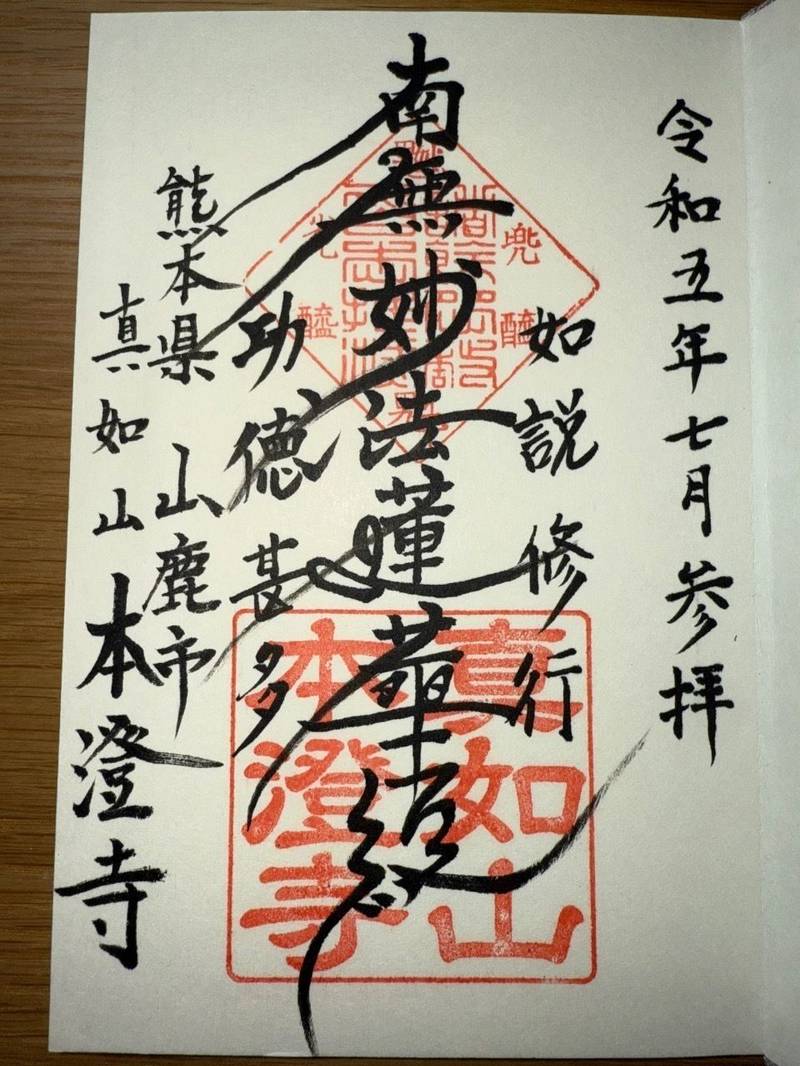 令和五年七月参拝
如説修行
南無妙法蓮華経
功徳甚多
熊本県 山鹿市
真如山 本澄寺
真如山
本澄寺